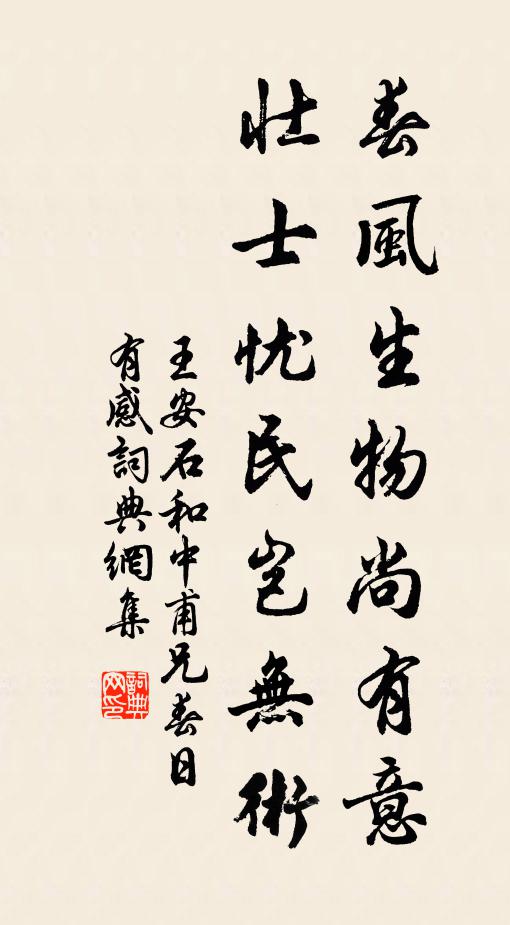 春風生物尚有意
壮士忧民岂無術
王安石和中甫兄春日
有感詞典網集
詞典
网印